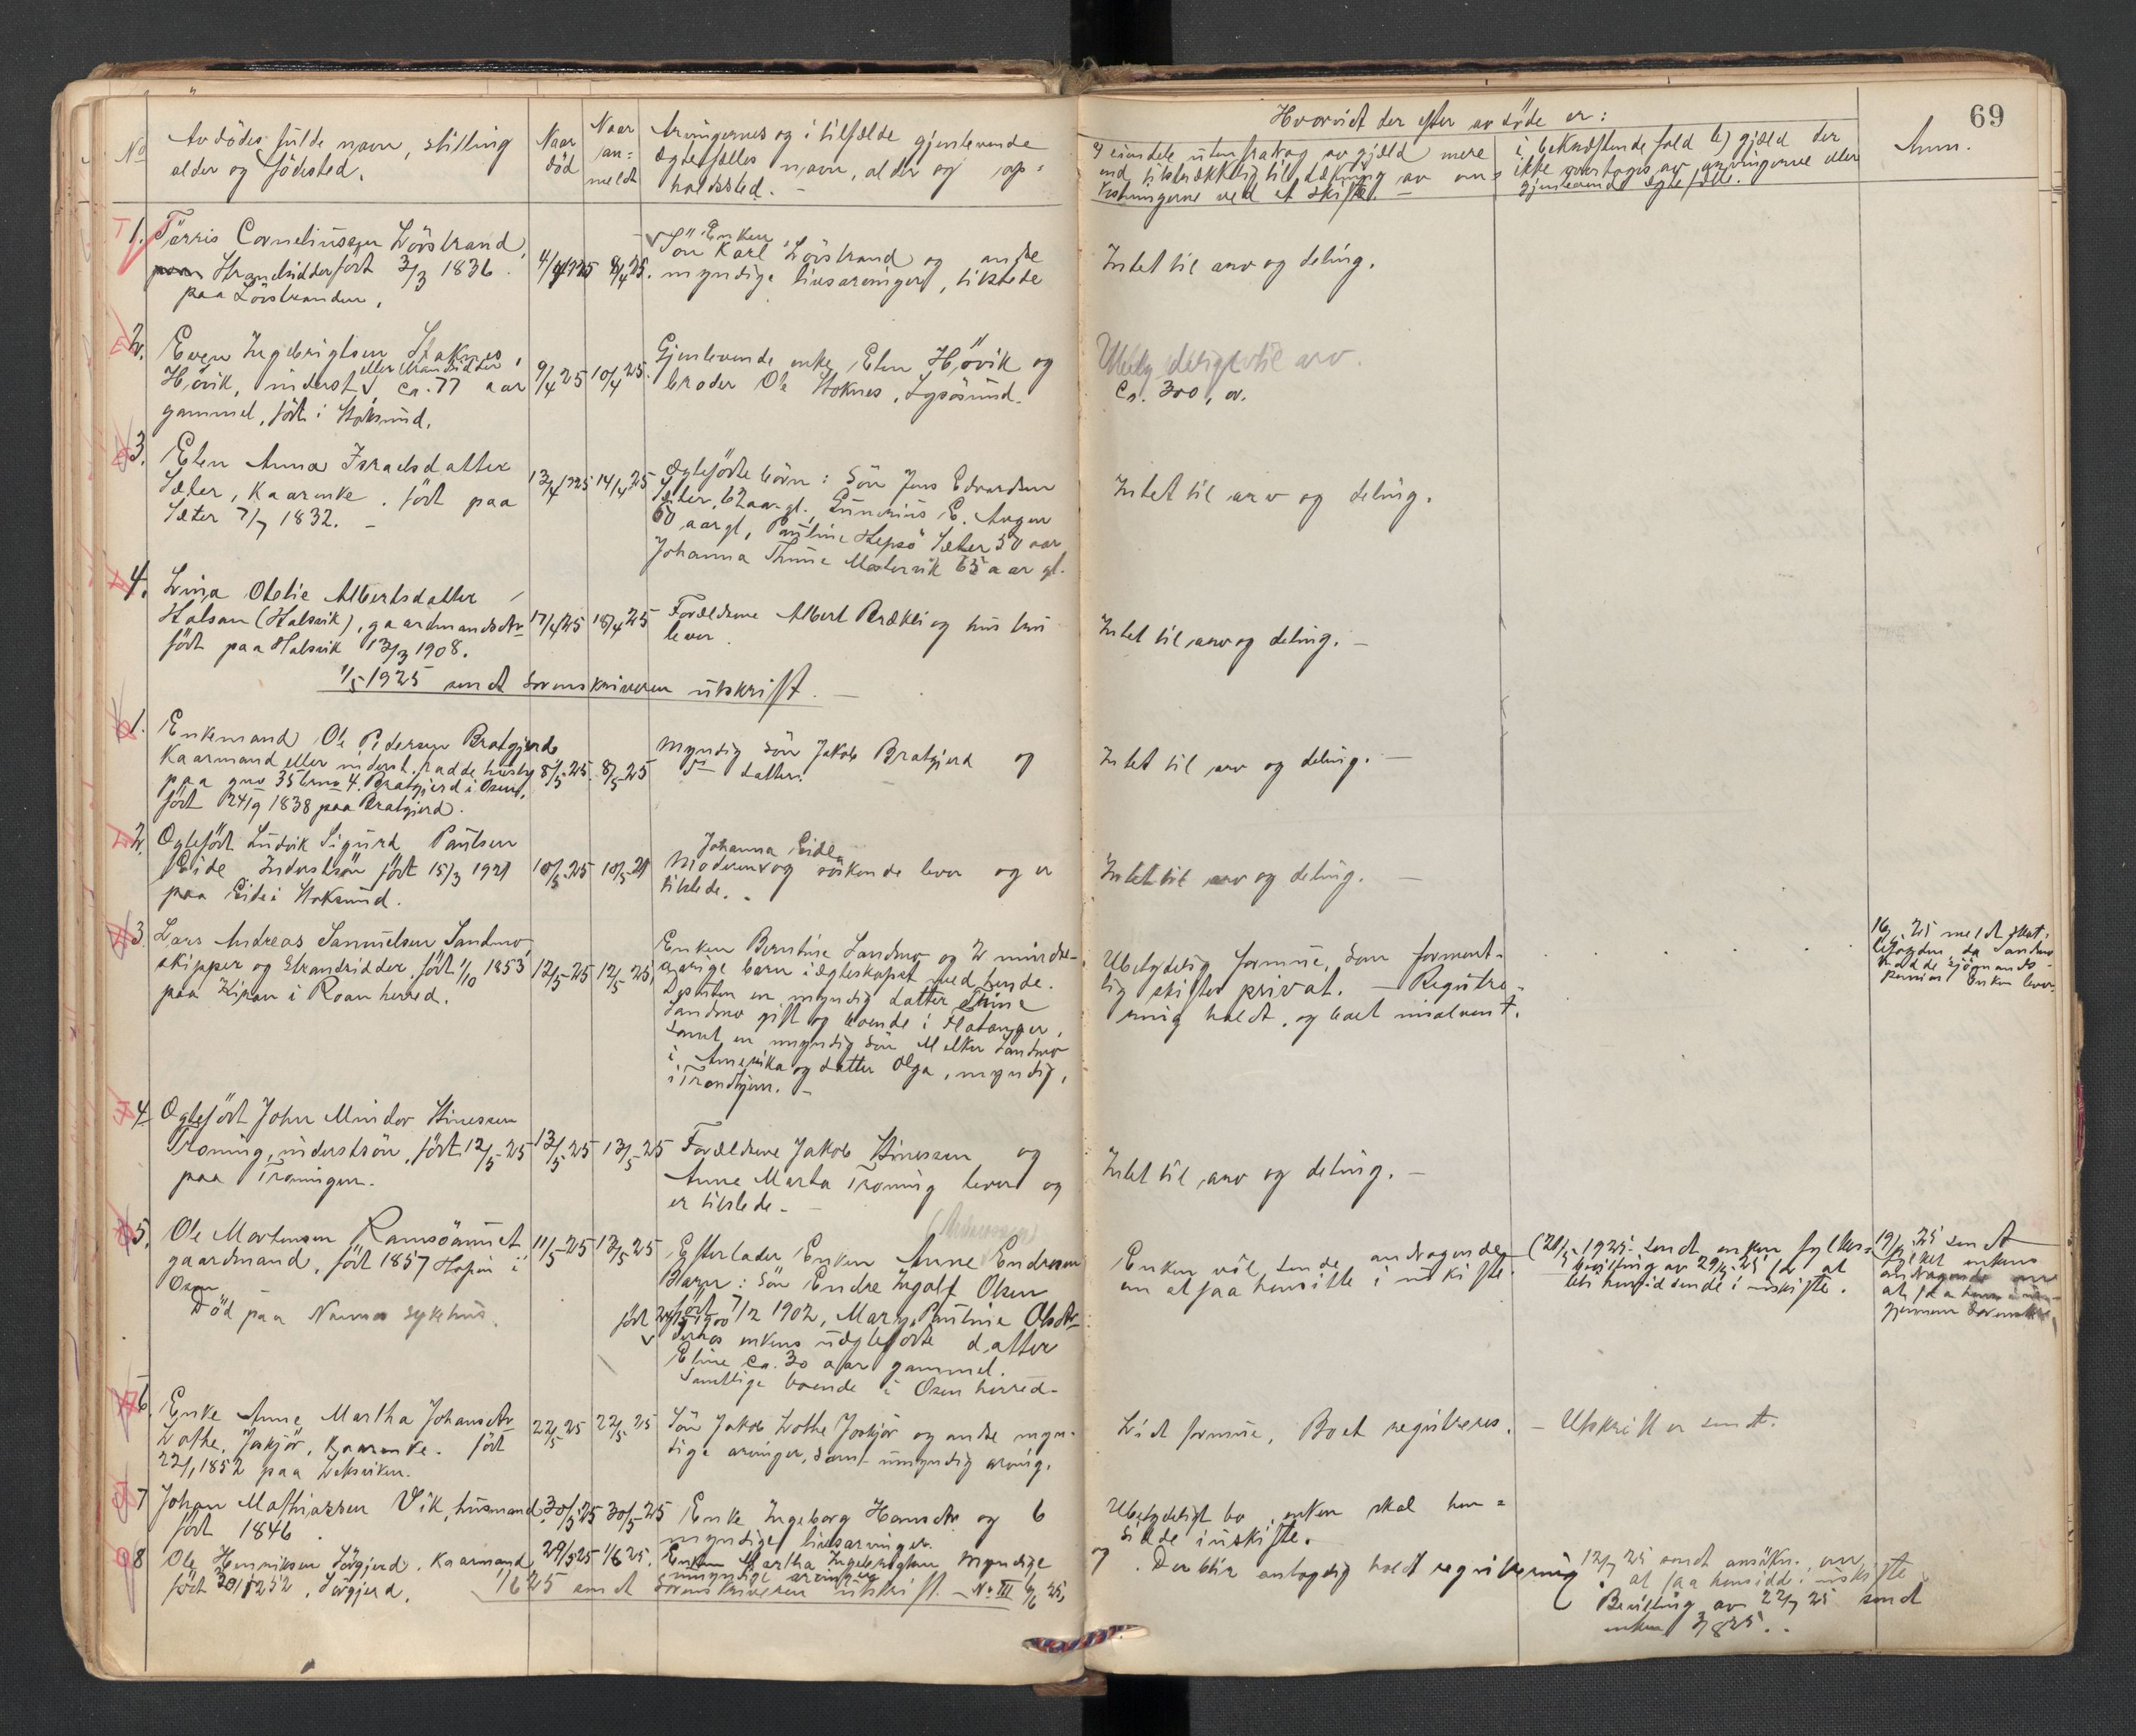 69
No
Avdødes fulde navn, stilling
alder og fødested.
Naar
død
Naar
an=
meldt
Arvingernes og i tilfælde gjenlevende
ægtefælles navn, alder og op=
holdssted. -
Hvorvidt der efter avdøde er:
a) eiendele uten fradrag av gjæld mere
end tilstrækkelig til dækning av om=
kostningerne ved et skifte. -
i bekræftende fald b) gjæld der
ikke overtages av arvingerne eller
gjenlevende ægtefælle.
Anm.
1. Tørris Corneliussen Lövstrand,
Strandsidder født 3/3 1836.
paa Lövstranden.
4/4 1925
8/4 25.
Enken
Sön Karl Lövstrand og andre
myndige livsarvinger, tilstede
Intet til arv og deling.
2. Even Ingebrigtsen Stoknes,
eller strandsidder
Hövik, inderst, ca. 77 aar
gammel, født i Stoksund.
9/4 25
10/4 25.
Gjenlevende enke Elen Hövik og
broder Ole Stoknes, Lysösund.
Ubetydelig til arv.
Ca. 300, o.
3. Elen Anna Israelsdatter
Sæter, Kaarenke. født paa
Sæter 7/7 1832. -
13/4 1925
14/4 25
Ægtefødte börn: Sön Jens Edvardsen
Sæter, 62 aar gl. E. Angen
60 aar gl, Pauline Hepsö Sæter 50 aar
Johanna Thine Mastervik 65 aar gl.
Intet til arv og deling.
4. Lina Otelie Albertsdatter
Halsan (Halsvik), gaardmandsdtr
født paa Halsvik 13/3 1908.
17/4 25
18/4 25
Forældrene Albert Brækli og hustru
lever.
Intet til arv og deling. -
1/5 1925 sendt sorenskriveren utskrift. -
1. Enkemand Ole Pedersen Bratgjerd
Kaarmand eller inderst. hadde husly
paa gno 35 bno 4. Bratgjerd i Osen,
født 24/9 1838 paa Bratgjerd.
8/5 25.
8/5 25
Myndig sön Jakob Bratgjerd og
datter.
Intet til arv og deling. -
2. Ægtefödt Ludvik Sigurd Paulsen
Eide Inderstsön født 15/3 1921
paa Eide i Stoksund.
10/5 25
10/5 25
Johanna Eide
Moderen og söskende lever og er
tilstede.
Intet til arv og deling. -
3. Lars Andreas Samuelsen Sandmo,
skipper og strandsidder, født 1/10 1853
paa Kiran i Roan herred.
12/5 25
12/5 25,
Enken Berntine Sandmo og 2 mindre=
aarige barn i ægteskapet med hende.
Desuten en myndig datter Thine
Sandmo gift og boende i Flatanger,
samt en myndig sön Melker Sandmo
i Amerika og datter Olga, myndig,
i Trondhjem. -
Ubetydelig formue, som forment=
lig skiftes privat. - Registre=
ring holdt, og boet insolvent.
25 meldt skat=
lefogden da Sandmo
hadde sjömands=
pension Enken lever
4 Ægtefödt John Mindor Hinessen
Troning, inderstsön, født 12/5 25
paa Troningen.
13/5 25
13/5 25
Forældrene Jakob Hinessen og
Anne Marta Troning lever og
er tilstede. -
Intet til arv og deling. -
5. Ole Mortensen Ramsöaunet
gaardmand, født 1857 Hopen i
Osen
Död paa Namsos sykehus.
11/5 25
13/5 25
(Andreassen)
Efterlader Enken Anne Endresen
Barn: Sön Endre Ingolf Olsen
født 7/12 1902, Mary Pauline Olsdtr
født 1900
Derhos enkens uægtefødte datter
Eline ca. 30 aar gammel.
Samtlige boende i Osen herred.
Enken vil sende andragende
om at faa hensitte i uskifte.
(20/5 1925 sendt enken fylkes=
bevilling av 29/5 25 for at
bli hensiddende i uskifte.
19/5 25 sendt
fylket enkens
andragende om
at faa
gjennem
6. Enke Anne Martha Johansdtr
Lothe, Jöskjör, Kaarenke. født
22/1 1852 paa Leksviken.
22/5 25
22/5 25
Sön Jakob Lothe Jöskjör og andre myn=
dige arvinger, samt umyndig arving.
Lidt formue, Boet registreres. - Utskrift er sendt.
7 Johan Mathiassen Vik, husmand,
født 1846.
30/5 25
30/5 25
Enke Ingeborg Hansdtr og 6
myndige livsarvinger.
Ubetydeligt bo, enken skal hen=
sidde i uskifte.
8 Ole Henriksen Sörgjerd. Kaarmand
født 1852, Sörgjerd.
29/5 25
1/6 25.
Enken Martha Ingebrigtsen myndige
og umyndige arvinger.
Der blir antagelig holdt registrering
12/7 25 sendt ansökn. om
at faa hensidde i uskifte
Bevilling av 22/7 25 sendt
enken 3/8 25.
1/6 25 sendt Sorenskriveren utskrift. - No III 4/6 25,